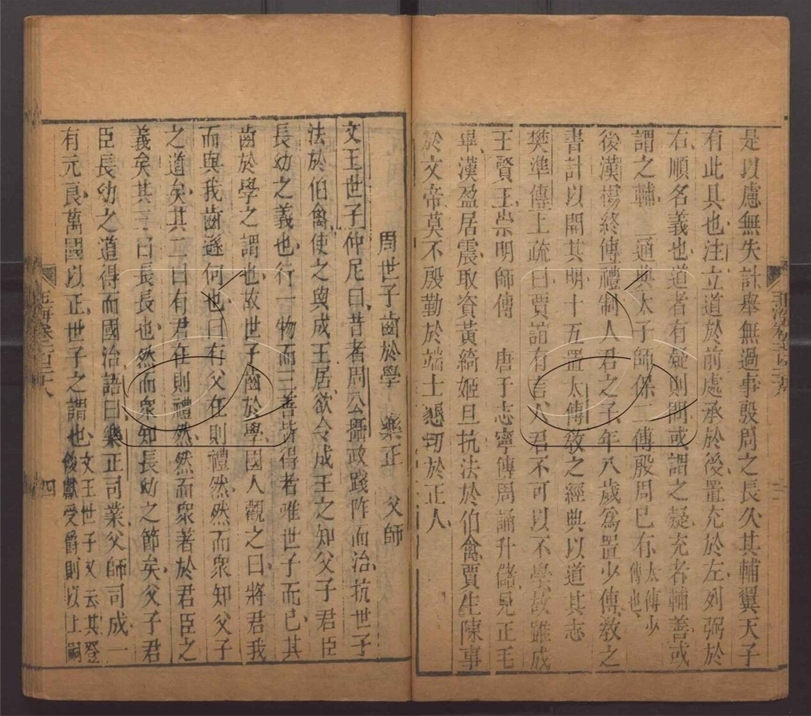 是以慮無失計舉無過事殷周之長久其輔翼天子
有此具也注立道於前處承於後置充於左列弼於
右順名義也道者有疑則問或謂之疑充者輔善或
謂之輔　通典太子師保二傅殷周已有太傅少傅也
後漢楊終傳禮制人君之子年八歲爲置少傅敎之
書計以開其明十五置太傅敎之經典以道其志
樊準傳上疏曰賈誼有言人君不可以不學故雖成
王賢王崇明師傅　唐于志寧傳周誦升儲見正毛
畢漢盈居震取資黃綺姬旦抗法於伯禽賈生陳事
於文帝莫不殷勤於端士懇切於正人
周世子齒於學　樂正　父師
文王世子仲尼曰昔者周公攝政踐阼而治抗世子
法於伯禽使之與成王居欲令成王之知父子君臣
長幼之義也行一物而三善皆得者唯世子而已其
齒於學之謂也故世子齒於學國人觀之曰將君我
而與我齒遜何也曰有父在則禮然然而衆知父子
之道矣其二曰有君在則禮然然而衆著於君臣之
義矣其三曰長長也然而衆知長幼之節矣父子君
臣長幼之道得而國治語曰樂正司業父師司成一
有元良萬國以正世子之謂也文王世子又云其登餕獻受爵則以上嗣
玉海卷一百二十八
四